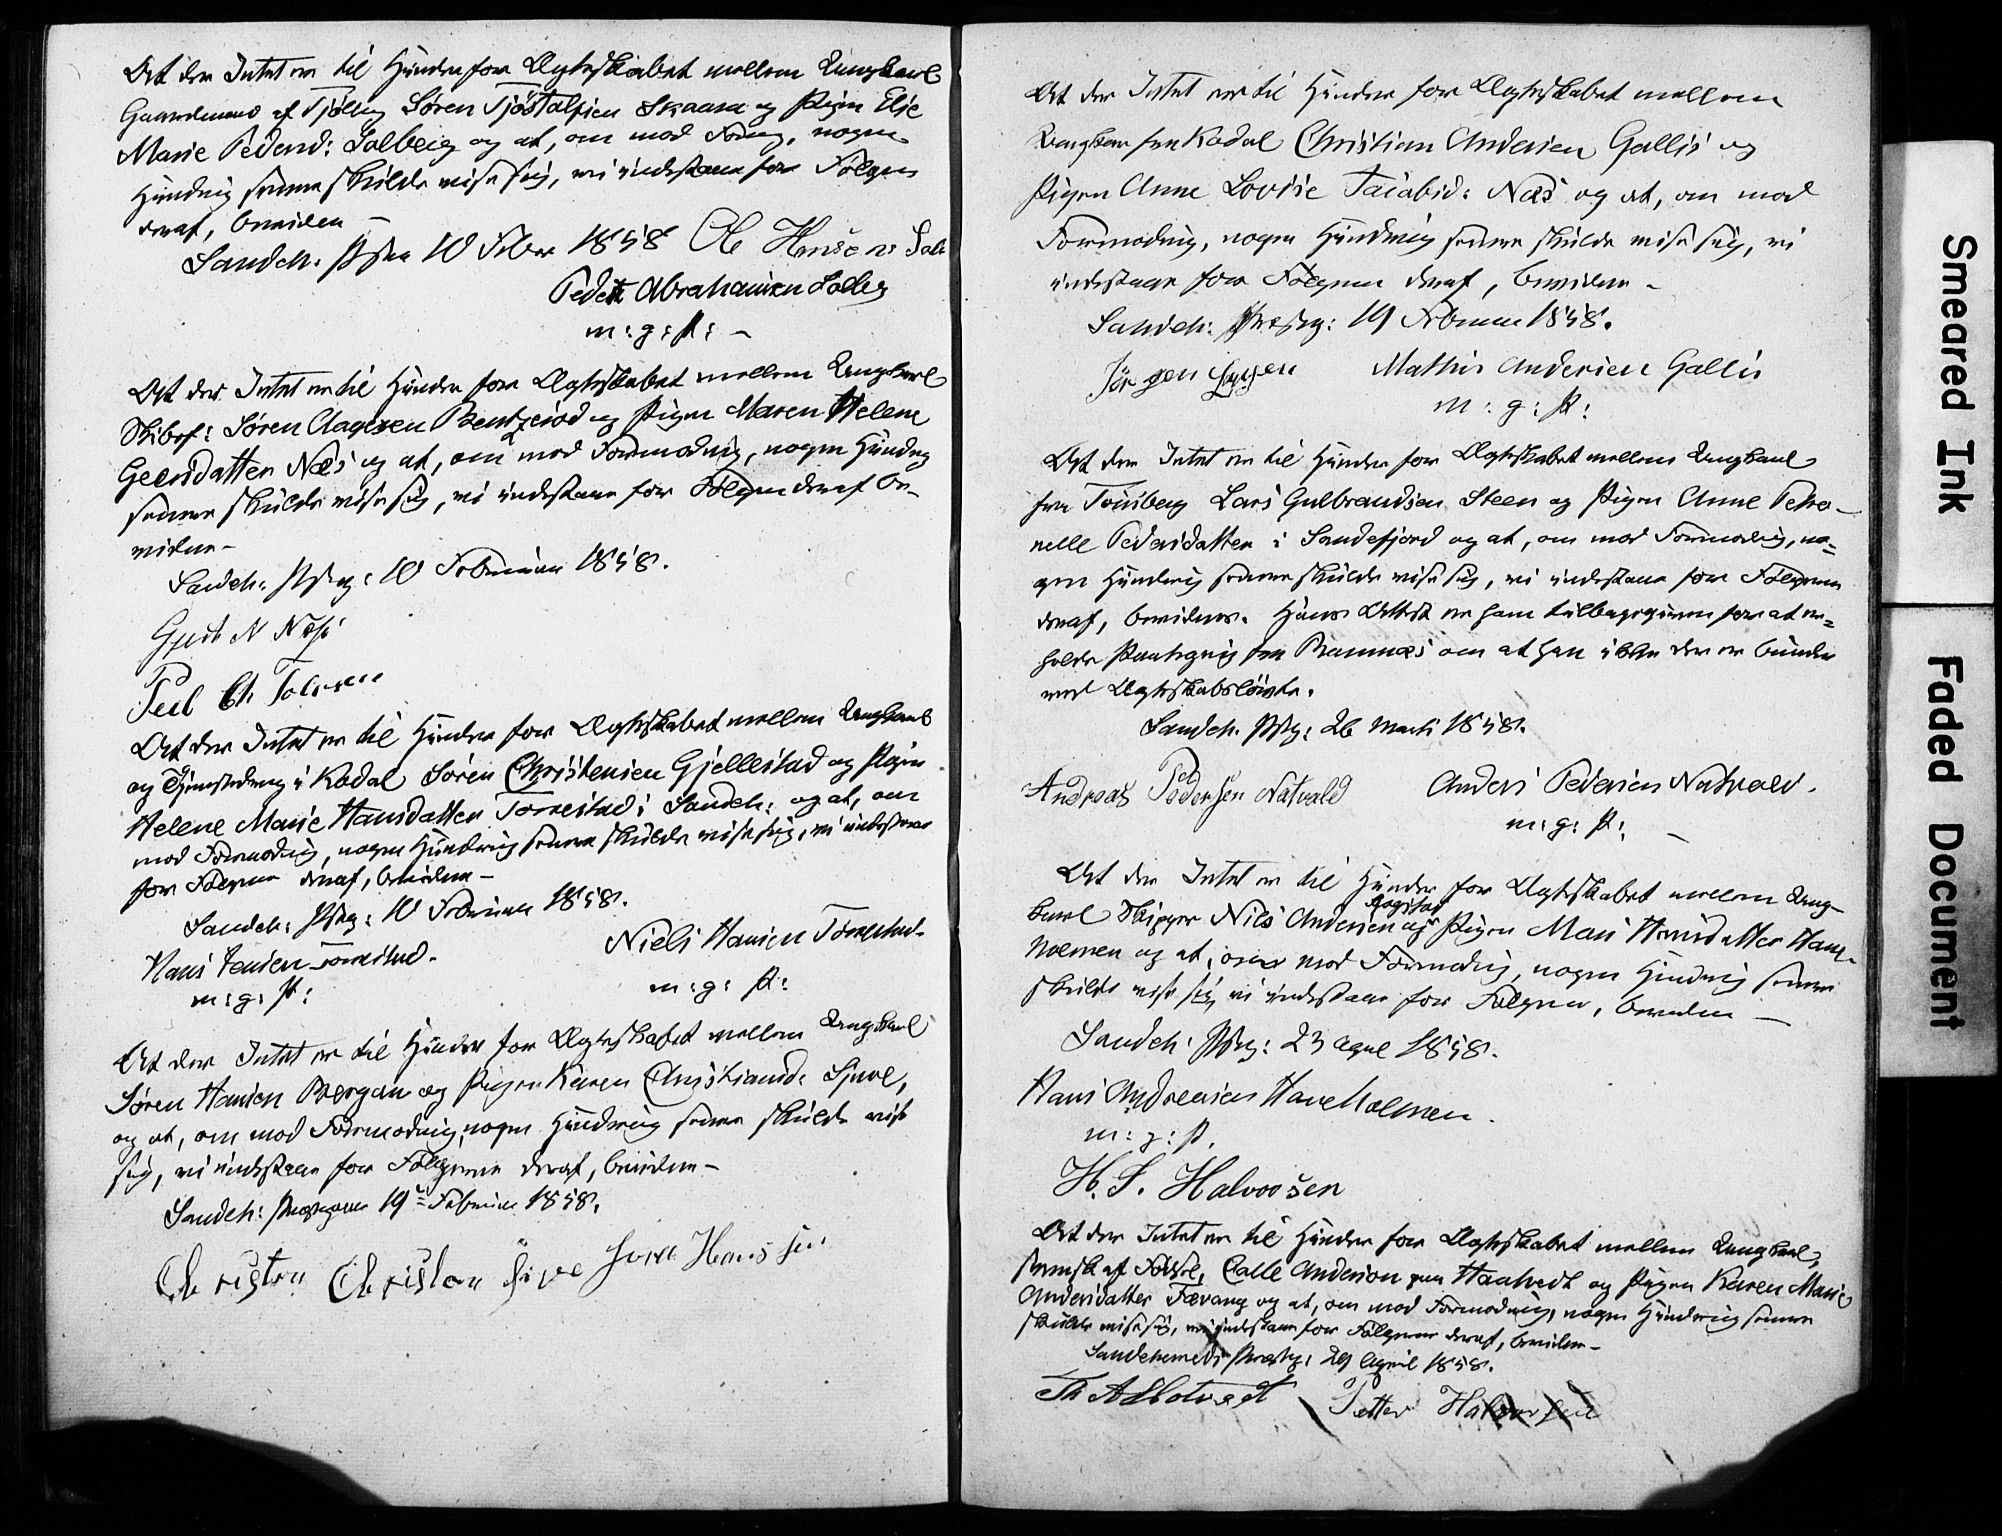 At der Intet er til Hinder for Ægteskabet mellem Ungkarl
Gaardmand af Tjølling Søren Tjøstolfsen Skaara og Pigen Else
Marie Pedersd: Solberg og at, om mod Formodng, nogen
Hindring senere skulde vise sig, vi indestaae for Følgen
deraf, bevidne –
Sandeh. Pstg 10 Febr 1858 Ole Hansen Sol
Peder Abrahamsen Solberg
m: g: P: –
At der Intet er til Hinder for Ægteskabet mellem Ungkarl
Skibsf: Søren Aagesen Bentzerød og Pigen Maren Helene
Geersdatter Næs og at, om mod Formodning, nogen Hindring
senere skulde vise sig, vi indestaae for Følgen deraf be-
vidne –
Sandeh: Pstg: 10 Februar 1858.
N Næss
At der Intet er til Hinder for Ægteskabet mellem Ungkarl
og Tjenestedreng i Kodal Søren Christensen Gjellestad og Pigen
Helene Marie Hansdatter Tomestad i Sandeh: og at, om
mod Formodning, nogen Hindring senere skulde vise sig, vi indestaae
for Følgerne deraf, bevidne –
Sandeh: Pstg: 10 Februar 1858.
Hans Jensen Tomestad. Niels Hansen Tomestad.
m: g: P: m: g: P:
At der Intet er til Hinder for Ægteskabet mellem Ungkarl
Søren Hansen Bergan og Pigen Karen Christiansd:
og at, om mod Formodning, nogen Hindring senere skulde vise
sig, vi indestaae for Følgerne deraf, bevidne –
Sandeh: Præstegaard 19de Februar 1858.
Christen Hanssen
At der Intet er til Hinder for Ægteskabet mellem
Ungkarl fra Kodal Christian Andersen Gallis og
Pigen Anne Lovise Jacobsd: Næs og at, om mod
Formodning, nogen Hindring senere skulde vise sig, vi
indestaae for Følgerne deraf, bevidne –
Sandeh: Præstg: 19 Februar 1858.
Jørgen Mathis Andersen Gallis
m: g: P:
At der Intet er til Hinder for Ægteskabet mellem Ungkarl
fra Tønsberg Lars Gulbrandsen Steen og Pigen Anne Petro-
nelle Pedersdatter i Sandefjord og at, om mod Formodning, no=
gen Hindring senere skulde vise sig, vi indestaae for Følgerne
deraf, bevidnes. Hans Attest er ham tilbagegiven for at er=
holde Paategning fra Ramnæs om at han ikke der er bunden
ved Ægteskabsløfte.
Sandeh. Pstg: 26 Marts 1858.
Andreas Pedersen Natvald Anders Pedersen Natvald.
m: g: P: –
At der Intet er til Hinder for Ægteskabet mellem Ung-
Gogstad
karl Skipper Nils Andersen og Pigen Mari Hansdatter Hav-
holmen og at, om mod Formodning, nogen Hindring senere
skulde vise sig, vi indestaae for Følgerne, bevidne –
Sandeh: Pstg: 23 April 1858.
Hans Andreasen Haveholmen.
m: g: P.
H. S. Halvorsen
At der Intet er til Hinder for Ægteskabet mellem Ungkarl,
svensk af Fødsel, Calle Anderson paa Haatvedt og Pigen Karen Marie
Andersdatter Fævang og at, om mod Formodning, nogen Hindring senere
skulde vise sig, vi indestaae for Følgerne deraf, bevidne –
Sandeherreds Præstg: 29 April 1858.
Petter Halvorsen
Smeared Ink
Faded Document